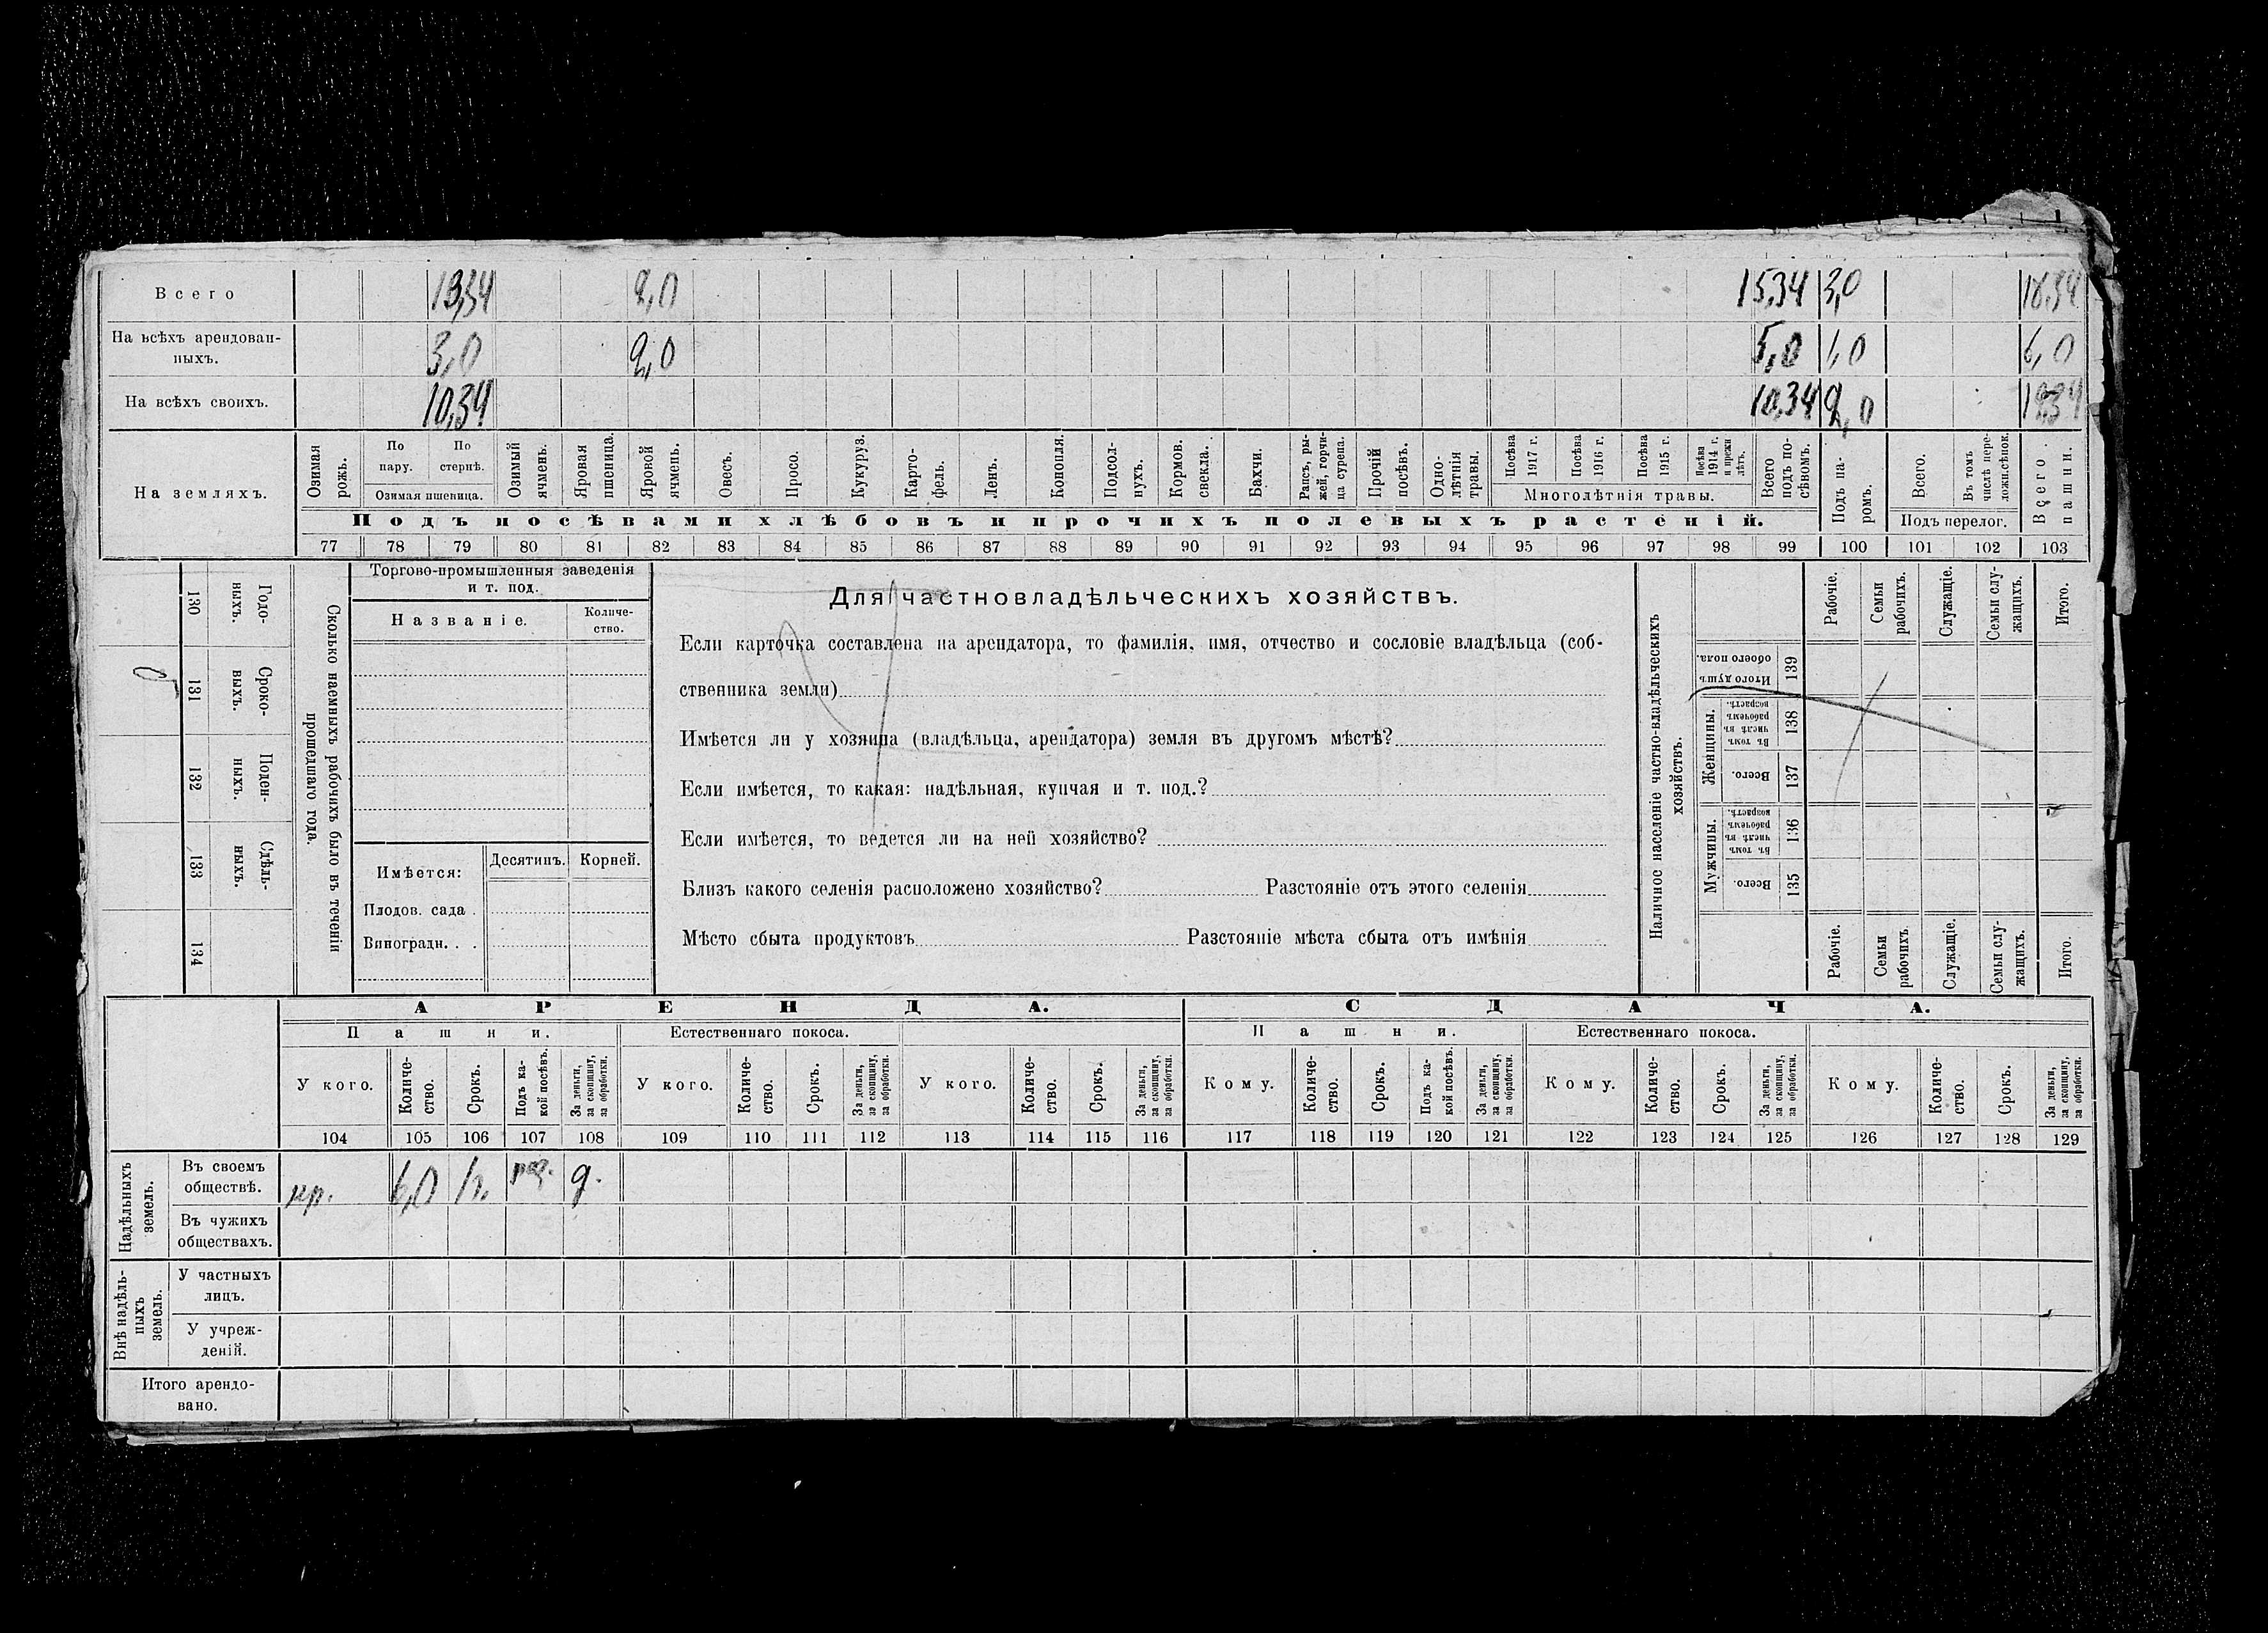 Всего 13,34 2,0 15,34 3,0 18,34
На всѣхъ арендован-
ныхъ. 3,0 2,0 5,0 1,0 6,0
На всѣхъ своихъ. 10,34 10,34 2,0
На земляхъ.
Озимая рожь.
По пару.
По стернѣ.
Озимая пшеница.
Озимый ячмень.
Яровая пшеница.
Яровой ячмень.
Овесъ.
Просо.
Кукуруз.
Карто-
фель.
Ленъ.
Конопля.
Подсол-
нухъ.
Кормов. свекла.
Бахчи.
Рапсъ, ры-
жей, горчи-
ца сурепа.
Прочій посѣвъ.
Одно-
лѣтнія травы.
Посѣва 1917 г.
Посѣва 1916 г.
Посѣва 1915 г.
Посѣва 1914 г. и прежн лѣтъ.
Многолѣтнія травы.
Всего подъ по-
сѣвомъ.
Подъ па-
ромъ.
Всего.
Въ томъ числѣ пере-
ложн.сѣнок.
Подъ перелог.
Всего пашни.
Подъ посѣвами хлѣбовъ и прочихъ полевыхъ растеній.
77 78 79 80 81 82 83 84 85 86 87 88 89 90 91 92 93 94 95 96 97 98 99 100 101 102 103
Годо-
ныхъ.
130
Сроко-
выхъ.
131
Поден-
ныхъ.
132
Сдѣль-
ныхъ.
133
134
Сколько наемныхъ рабочихъ было въ теченіи
прошедшаго года.
Торгово-промышленныя заведенія
и т. под.
Названіе.
Количе-
ство.
Имѣется:
Десятинъ.
Корней.
Плодов. сада .
Виноградн. . .
Для частновладѣльческихъ хозяйствъ.
Если карточка составлена на арендатора, то фамилія, имя, отчество и сословіе владѣльца (соб-
ственника земли)
Имѣется ли у хозяина (владѣльца, арендатора) земля въ другомъ мѣстѣ?
Если имѣется, то какая: надѣльная, купчая и т. под.?
Если имѣется, то ведется ли на ней хозяйство?
Близъ какого селенія расположено хозяйство? Разстояніе отъ этого селенія
Мѣсто сбыта продуктовъ Разстояніе мѣста сбыта отъ имѣнія
Наличное населеніе частно-владѣльческихъ
хозяйствъ.
Рабочіе.
Семьи рабочихъ.
Служащіе.
Семьи слу-
жащихъ.
Итого.
Итого душъ обоего пола.
139
Женщины.
Въ томъ числѣ въ рабочемъ возрастѣ.
138
Всего.
137
Мужчины.
Въ томъ числѣ въ рабочемъ возрастѣ.
136
Всего.
135
Рабочіе.
Семьи рабочихъ.
Служащіе.
Семьи слу-
жащихъ.
Итого.
АРЕНДА.
СДАЧА.
Пашни.
Естественнаго покоса.
Пашни.
Естественнаго покоса.
У кого.
Количе-
ство.
Срокъ.
Подъ ка-
кой посѣвъ.
За деньги, за скопщину, за обработки.
У кого.
Количе-
ство.
Срокъ.
За деньги, за скопщину, за обработки.
У кого.
Количе-
ство.
Срокъ.
За деньги, за скопщину, за обработки.
Кому.
Количе-
ство.
Срокъ.
Подъ ка-
кой посѣвъ.
За деньги, за скопщину, за обработки.
Кому.
Количе-
ство.
Срокъ.
За деньги, за скопщину, за обработки.
Кому.
Количе-
ство.
Срокъ.
За деньги, за скопщину, за обработки.
104 105 106 107 108 109 110 111 112 113 114 115 116 117 118 119 120 121 122 123 124 125 126 127 128 129
Надѣльныхъ земель.
Въ своемъ
обществѣ. кр. 6,0 д.
Въ чужихъ
обществахъ.
Внѣ надѣль-
ныхъ земель.
У частныхъ
лицъ.
У учреж-
деній.
Итого арендо-
вано.